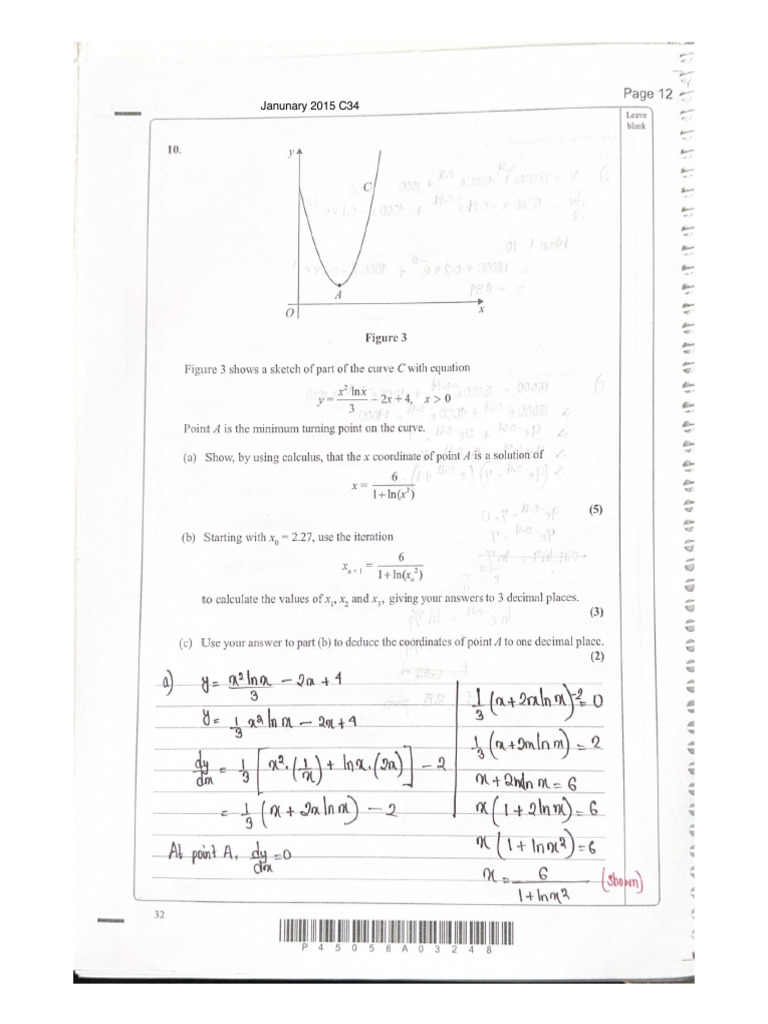 Janunary 2015 C34
Page 12
Leave
blank
10.
y
C
A
O
x
Figure 3
Figure 3 shows a sketch of part of the curve C with equation
y = x² ln x / 3 − 2x + 4, x > 0
Point A is the minimum turning point on the curve.
(a) Show, by using calculus, that the x coordinate of point A is a solution of
x = 6 / (1 + ln(x²))
(5)
(b) Starting with x₀ = 2.27, use the iteration
xₙ₊₁ = 6 / (1 + ln(xₙ²))
to calculate the values of x₁, x₂ and x₃, giving your answers to 3 decimal places.
(3)
(c) Use your answer to part (b) to deduce the coordinates of point A to one decimal place.
(2)
a) y = x² ln x / 3 − 2x + 4
y = 1/3 x² ln x − 2x + 4
dy/dx = 1/3 [x² · (1/x) + ln x · (2x)] − 2
= 1/3 (x + 2x ln x) − 2
At point A, dy/dx = 0
1/3 (x + 2x ln x) − 2 = 0
1/3 (x + 2x ln x) = 2
x + 2x ln x = 6
x (1 + 2 ln x) = 6
x (1 + ln x²) = 6
x = 6 / (1 + ln x²) (shown)
32
P45058A03248